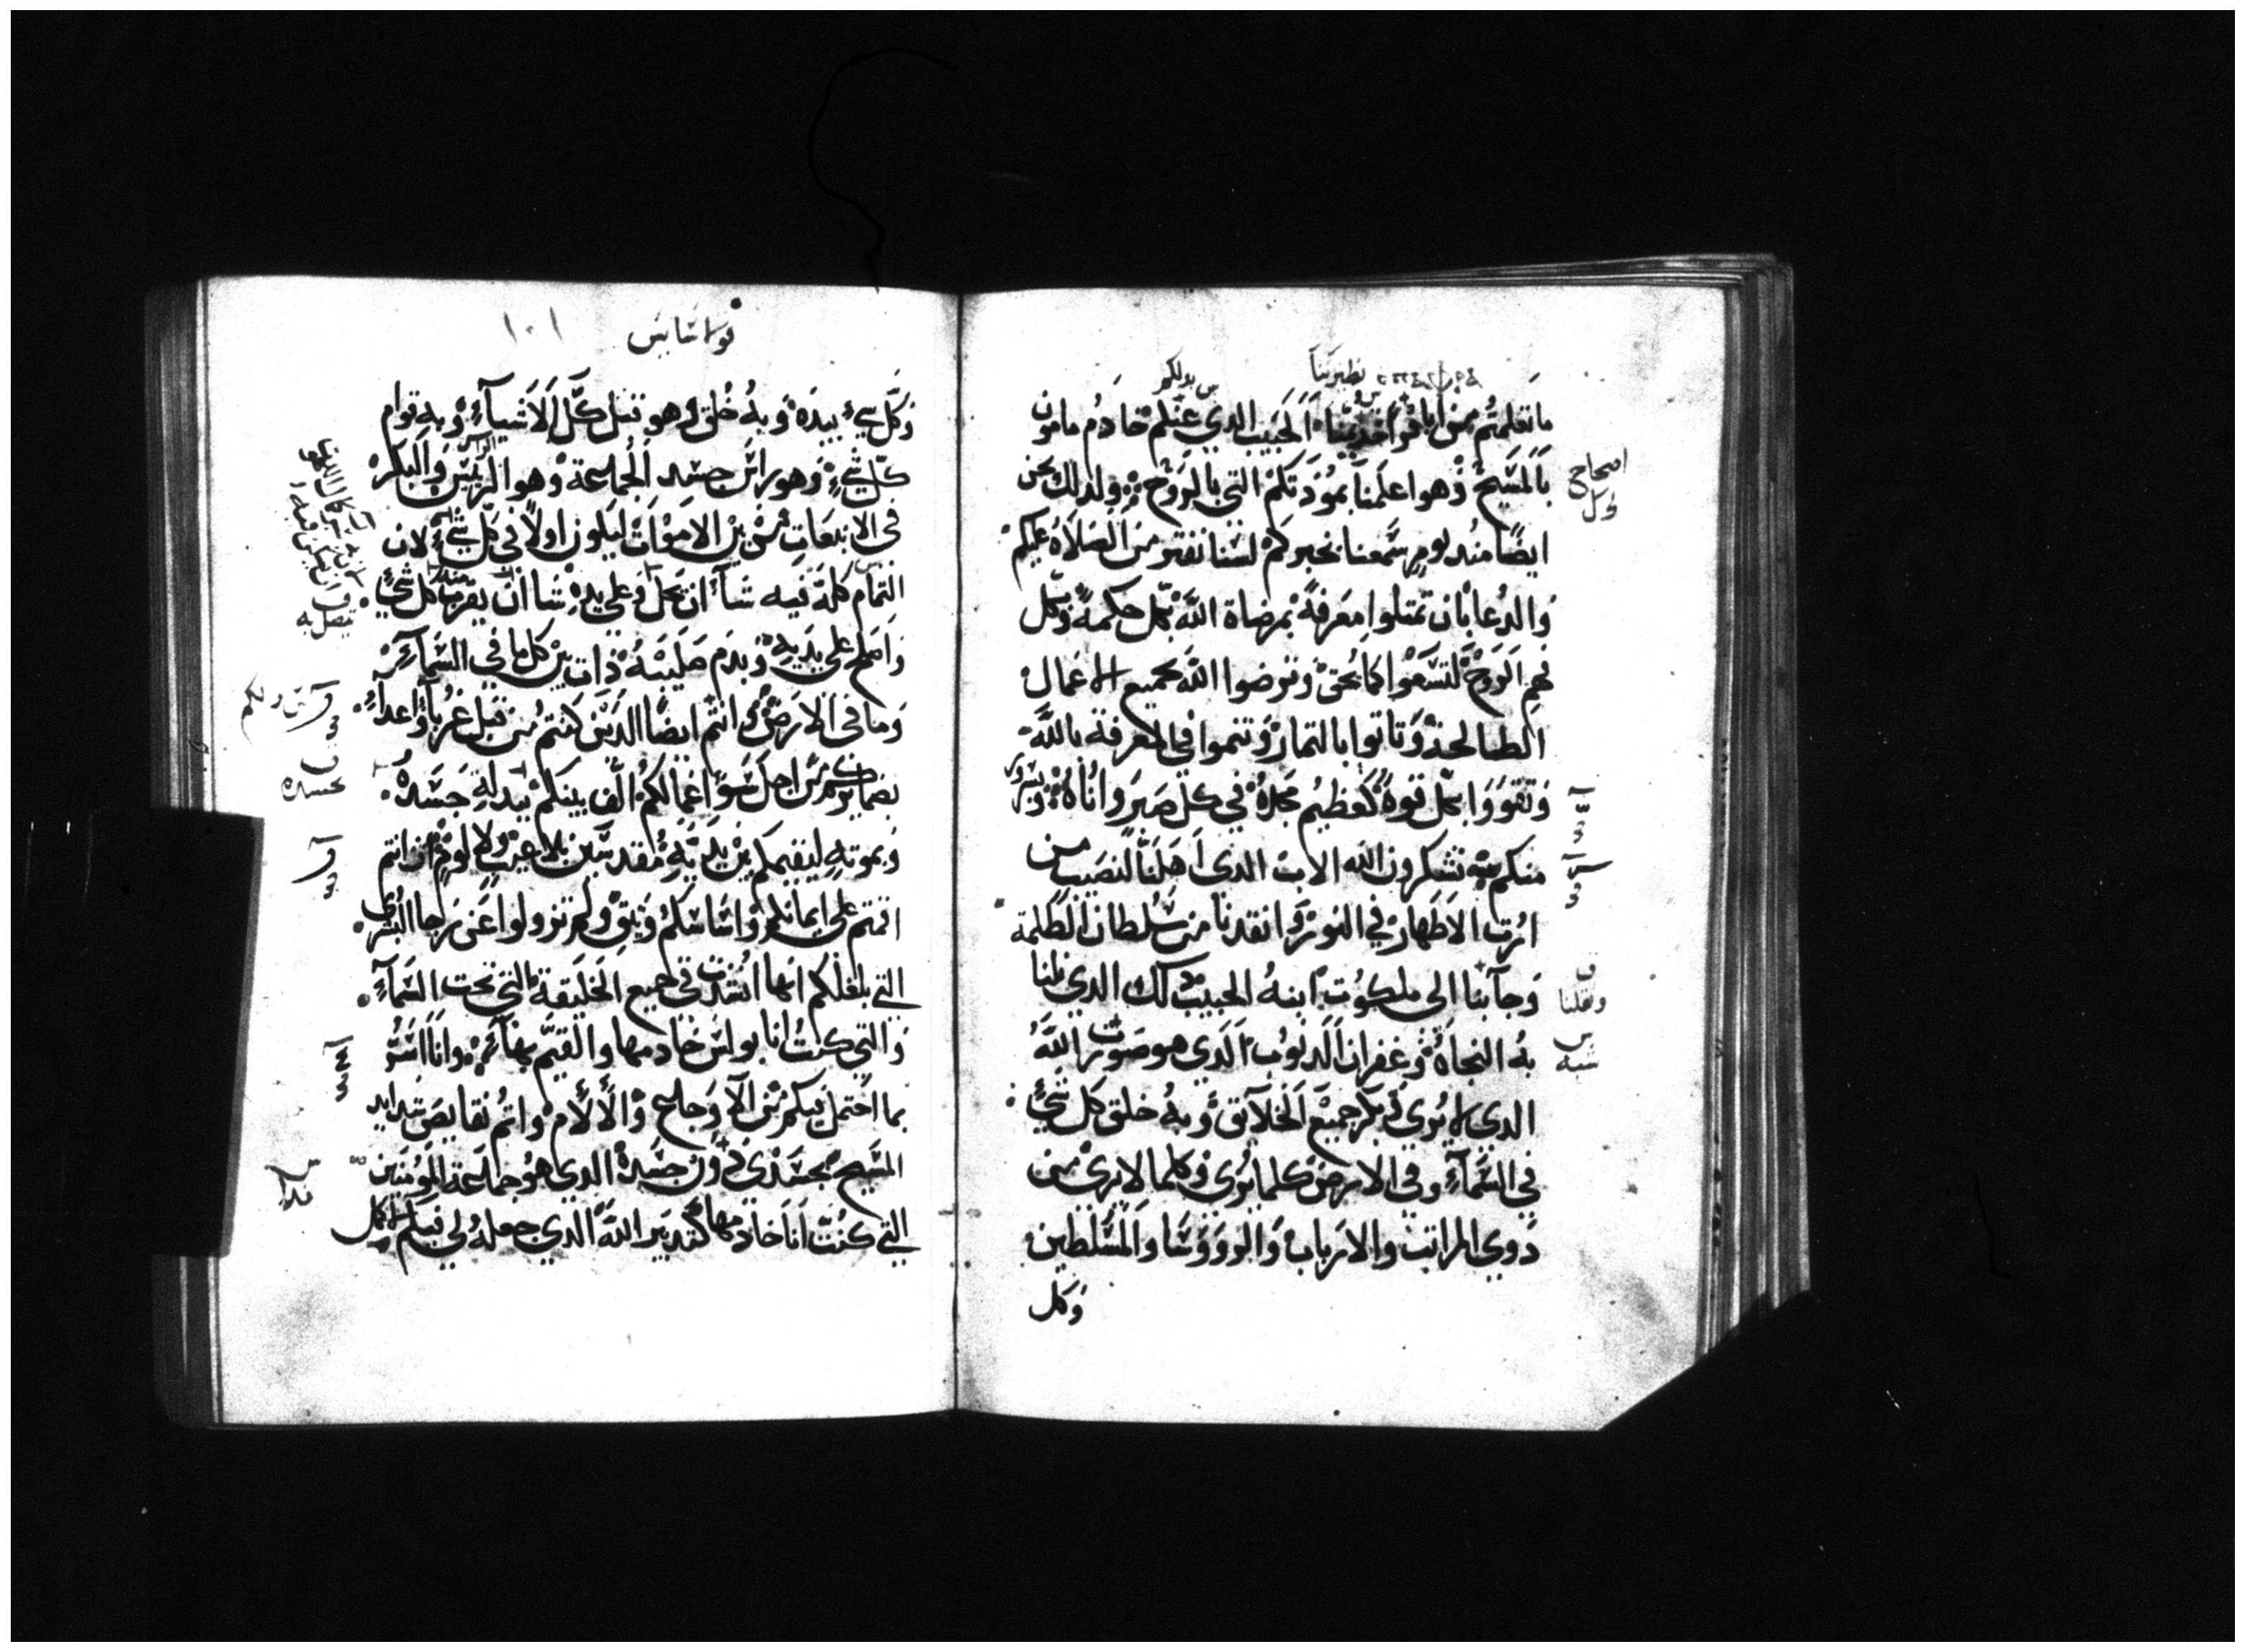 نظيرنا
س بدلكم
ما تعلمتم من ابافرا خديمنا الحبيب الدي عنكم خادم مامون
بالمسيح وهو اعلمنا بمودتكم التي بالروح ولدلك نحن
ايضًا مند يوم سمعنا بخبركم لسنا نفتر من الصلاه عليكم
والدعا بان تمتلوا معرفة بمرضاة الله بكل حكمة وبكل
فهم الروح لتسعوا كما يحق وترضوا الله بجميع الاعمال
الصالحة وتاتوا بالتمار وتنموا في المعرفة بالله
وتقووا بكل قوه كعظيم مجده في كل صبر واناه
منكم تشكرون الله الاب الدي اهلنا لنصيب من
ارت الاطهار في النور وانقدنا من سلطان الظلمة
وجابنا الى ملكوت ابنه الحبيب دلك الدي نلنا
به النجاه وغفران الدنوب الدي هو صورة الله
الدي لا يرى بكر جميع الخلايق وبه خلق كل شي
في السماء وفي الارض كلما يرى وكلما لا يرى من
دوي المراتب والارباب والرووسا والمسلطين
وكل
اصحاح
وكل
ف
ونقلنا
س
شبه
قولاسايس ١٠١
وكل شي بيده وبه خلق وهو قبل كل الاشياء وبه قوام
كل شي وهو راس جسد الجماعة وهو الريس والبكر
في الانبعات من بين الاموات ليكون اولًا في كل شي لان
التمام كله فيه شاء ان يحل وعلى يده شا ان يقرب كل شي
واصلح على يديه وبدم صليبه دات بين كل ما في السماء
وما في الارض وانتم ايضًا الدين كنتم من قبل غربا واعداء
بضمايركم من اجل سو اعمالكم الف بينكم ببدله جسده
وبموته ليقيمكم بين يديه مقدسين بلا عيب ولا لوم ان انتم
اقمتم على ايمانكم واساسكم وتيق ولم تزولوا عن رجا البشرى
التي بلغكم انها اندرت في جميع الخليقة التي تحت السماء
والتي كنت انا بولس خادمها والقيم بها وانا اسر
بما احتمل فيكم من الاوجاع والالام واتم نقايص شدايد
المسيح بجسدي دون جسده الدي هو جماعة المومنين
التي كنت انا خادمها كتدبير الله الدي جعله لي فيكم لاكمل
ف
بجسده